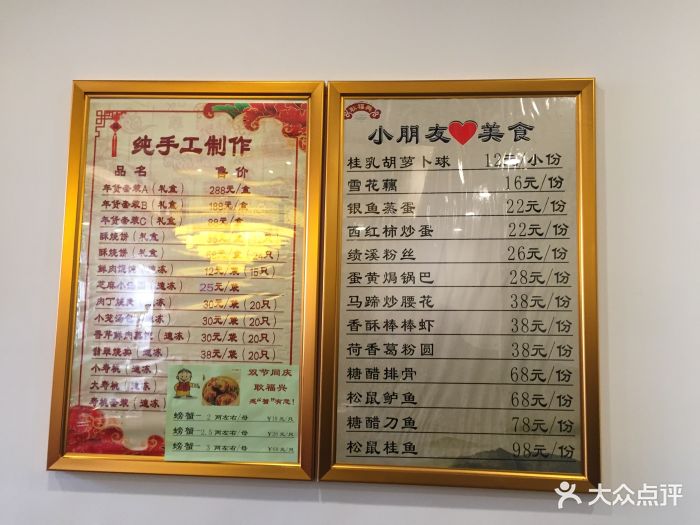 纯手工制作
品名 售价
年货套装A(礼盒) 288元/盒
年货套装B(礼盒) 188元/盒
年货套装C(礼盒)
酥烧饼(礼盒)
酥烧饼(
鲜肉馄饨(速冻) 12元/袋(15只)
芝麻小 速冻) 25元/袋
肉丁烧卖(速冻) 30元/袋(20只)
小笼汤包(速冻) 30元/袋(20只)
荠芹鲜肉蒸饺(速冻) 30元/袋(20只)
翡翠烧卖(速冻) 38元/袋(20只)
小寿桃(速冻)
大寿桃(速冻
寿桃套装(速冻
双节同庆
耿福兴
惠"蟹"有您!
螃蟹—2两左右/母
螃蟹—2.5两左右/母
螃蟹—3两左右/母
耿福兴
小朋友 美食
桂乳胡萝卜球 12元/小份
雪花藕 16元/份
银鱼蒸蛋 22元/份
西红柿炒蛋 22元/份
绩溪粉丝 26元/份
蛋黄焗锅巴 28元/份
马蹄炒腰花 38元/份
香酥棒棒虾 38元/份
荷香葛粉圆 38元/份
糖醋排骨 68元/份
松鼠鲈鱼 68元/份
糖醋刀鱼 78元/份
松鼠桂鱼 98元/份
大众点评